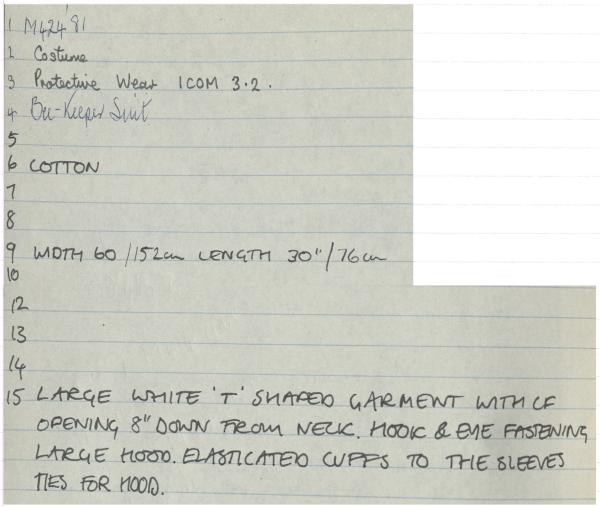 1 M424'81
2 Costume
3 Protective Wear ICOM 3.2.
4 Bee-Keeper Suit
5
6 COTTON
7
8
9 WIDTH 60 /152cm LENGTH 30"/76cm
10
12
13
14
15 LARGE WHITE 'T' SHAPED GARMENT WITH CF
OPENING 8" DOWN FROM NECK. HOOK & EYE FASTENING
LARGE HOOD. ELASTICATED CUFFS TO THE SLEEVES
TIES FOR HOOD.